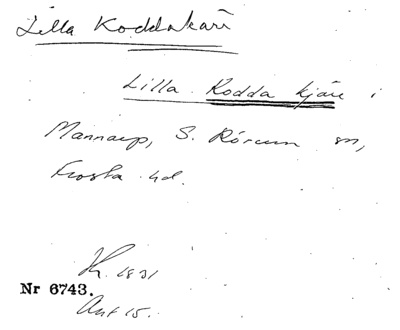 Lilla Koddakärr
Lilla Kodda kjärr i
Mannarp, S. Rörum sn,
Frosta hd.
K. 1831
Nr 6743.
Akt 15.